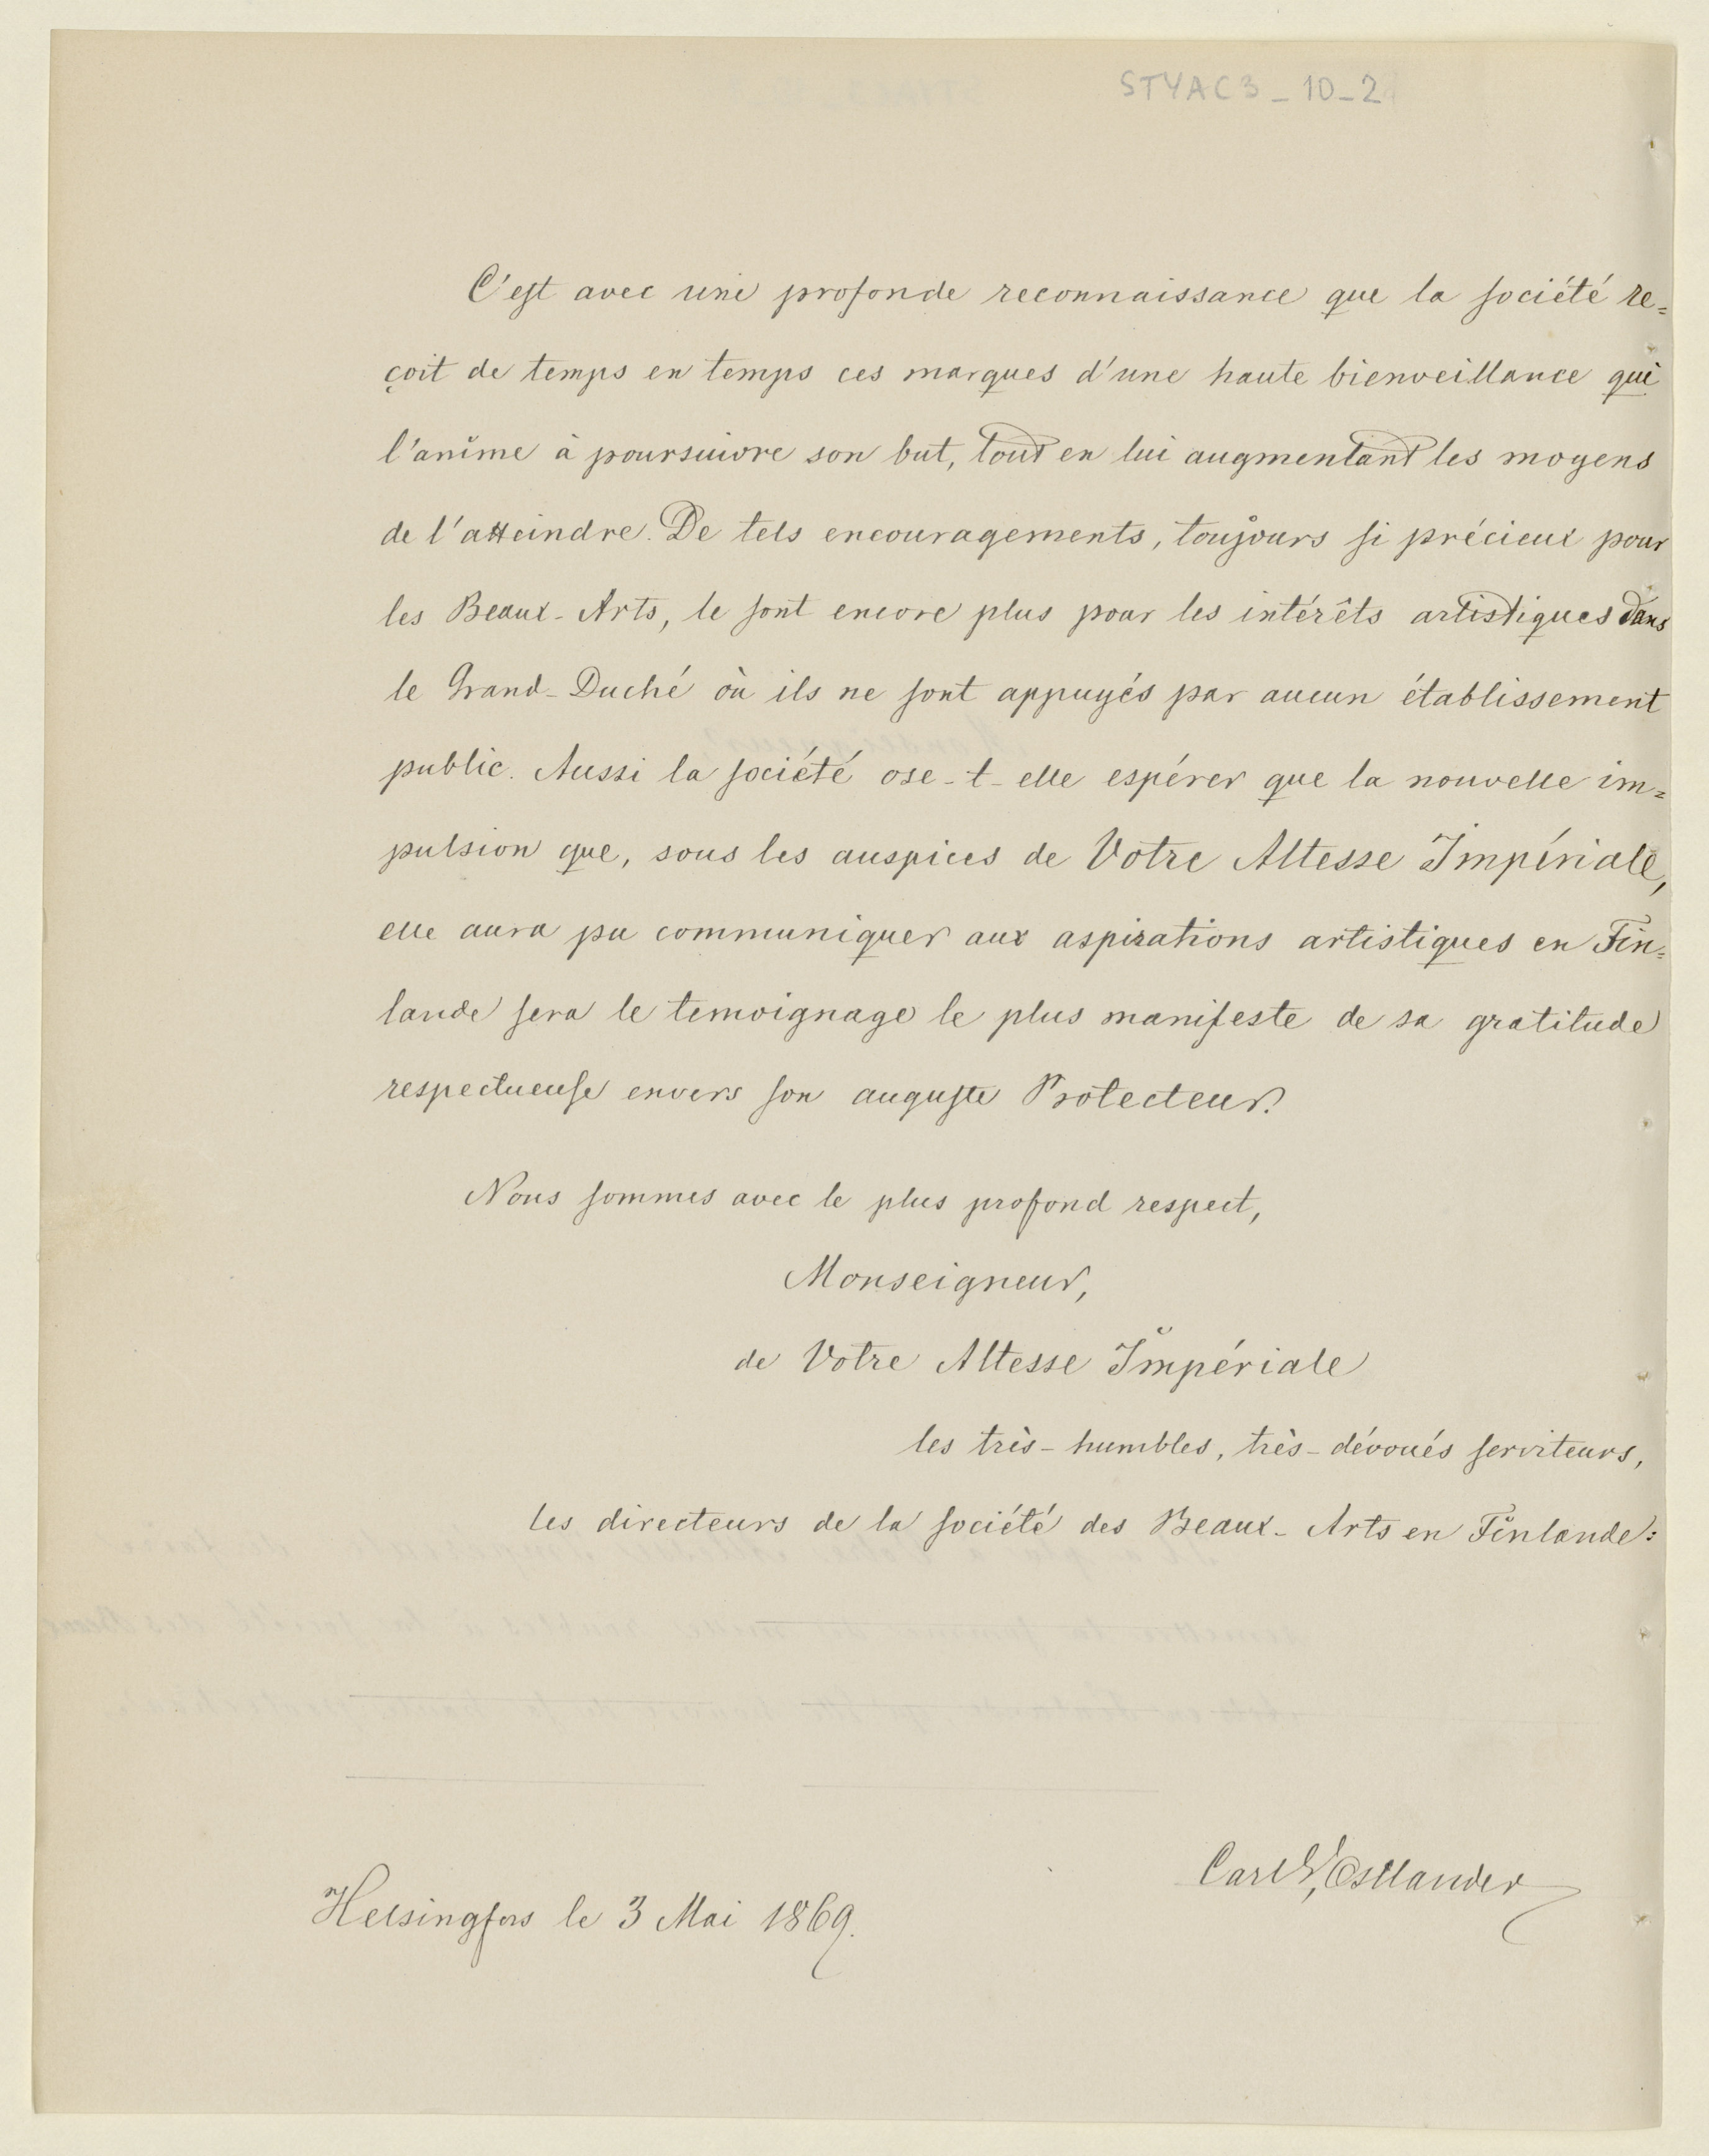 STYAC3_10_2
C'est avec une profonde reconnaissance que la société re=
çoit de temps en temps ces marques d'une haute bienveillance qui
l'anime à poursuivre son but, tout en lui augmentant les moyens
de l'atteindre. De tels encouragements, toujours si précieux pour
les Beaux-Arts, le sont encore plus pour les intérêts artistiques dans
le Grand-Duché où ils ne sont appuyés par aucun établissement
public. Aussi la société ose-t-elle espérer que la nouvelle im=
pulsion que, sous les auspices de Votre Altesse Impériale,
elle aura pu communiquer aux aspirations artistiques en Fin=
lande sera le temoignage le plus manifeste de sa gratitude
respectueuse envers son auguste Protecteur.
Nous sommes avec le plus profond respect,
Monseigneur,
de Votre Altesse Impériale
les très-humbles, très-dévoués serviteurs,
les directeurs de la société des Beaux-Arts en Finlande:
Carl G, Estlander
Helsingfors le 3 Mai 1869.